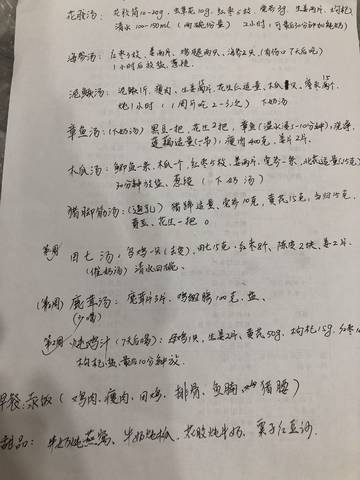 花胶汤：花胶筒10-20g，虫草花10g，红枣5枚，党参3g，生姜两片，枸杞
清水100-150ml（两碗份量） 2小时（可最后30分钟加纯奶）
海参汤：红枣5枚、姜两片、鸡腿两只、海参2只（有伤口7天后吃）
1小时后放盐、葱提
泥鳅汤：泥鳅1斤、瘦肉、生姜两片、花生仁适量、木瓜1只、蜜枣15个
炖1小时（1周可吃2-3次）下奶汤
章鱼汤：（下奶汤）黑豆一把，花生2把，章鱼（温水浸5-10分钟），洗净，
莲藕适量（一节），瘦肉400克，姜片2片。
木瓜汤：鲫鱼一条、木瓜个、红枣5枚、姜两片、党参一条、北芪适量15克
30分钟放盐、葱提（下奶汤）
猪脚筋汤：（通乳）猪蹄适量、党参10克，黄芪15克，当归15克，
黄豆、花生一把。
第1周 田七汤：乌鸡一只（去皮），田七15克，红枣8个、陈皮2块、姜2片、
（催奶汤）清水四碗、
（第1周）鹿茸汤：鹿茸片3片、鸡胸脯100克、盐、
（少喝）
第2周 炖鸡汁（7天后喝）：母鸡1只、生姜2片，黄芪50g，枸杞15g，红枣10
枸杞、盐、最后10分钟放、
早餐：汆饭（鸡肉、瘦肉、田鸡、排骨、鱼腩、猪腰）
甜品：牛奶炖燕窝、牛奶炖木瓜、花胶炖牛奶、栗子红豆沙。